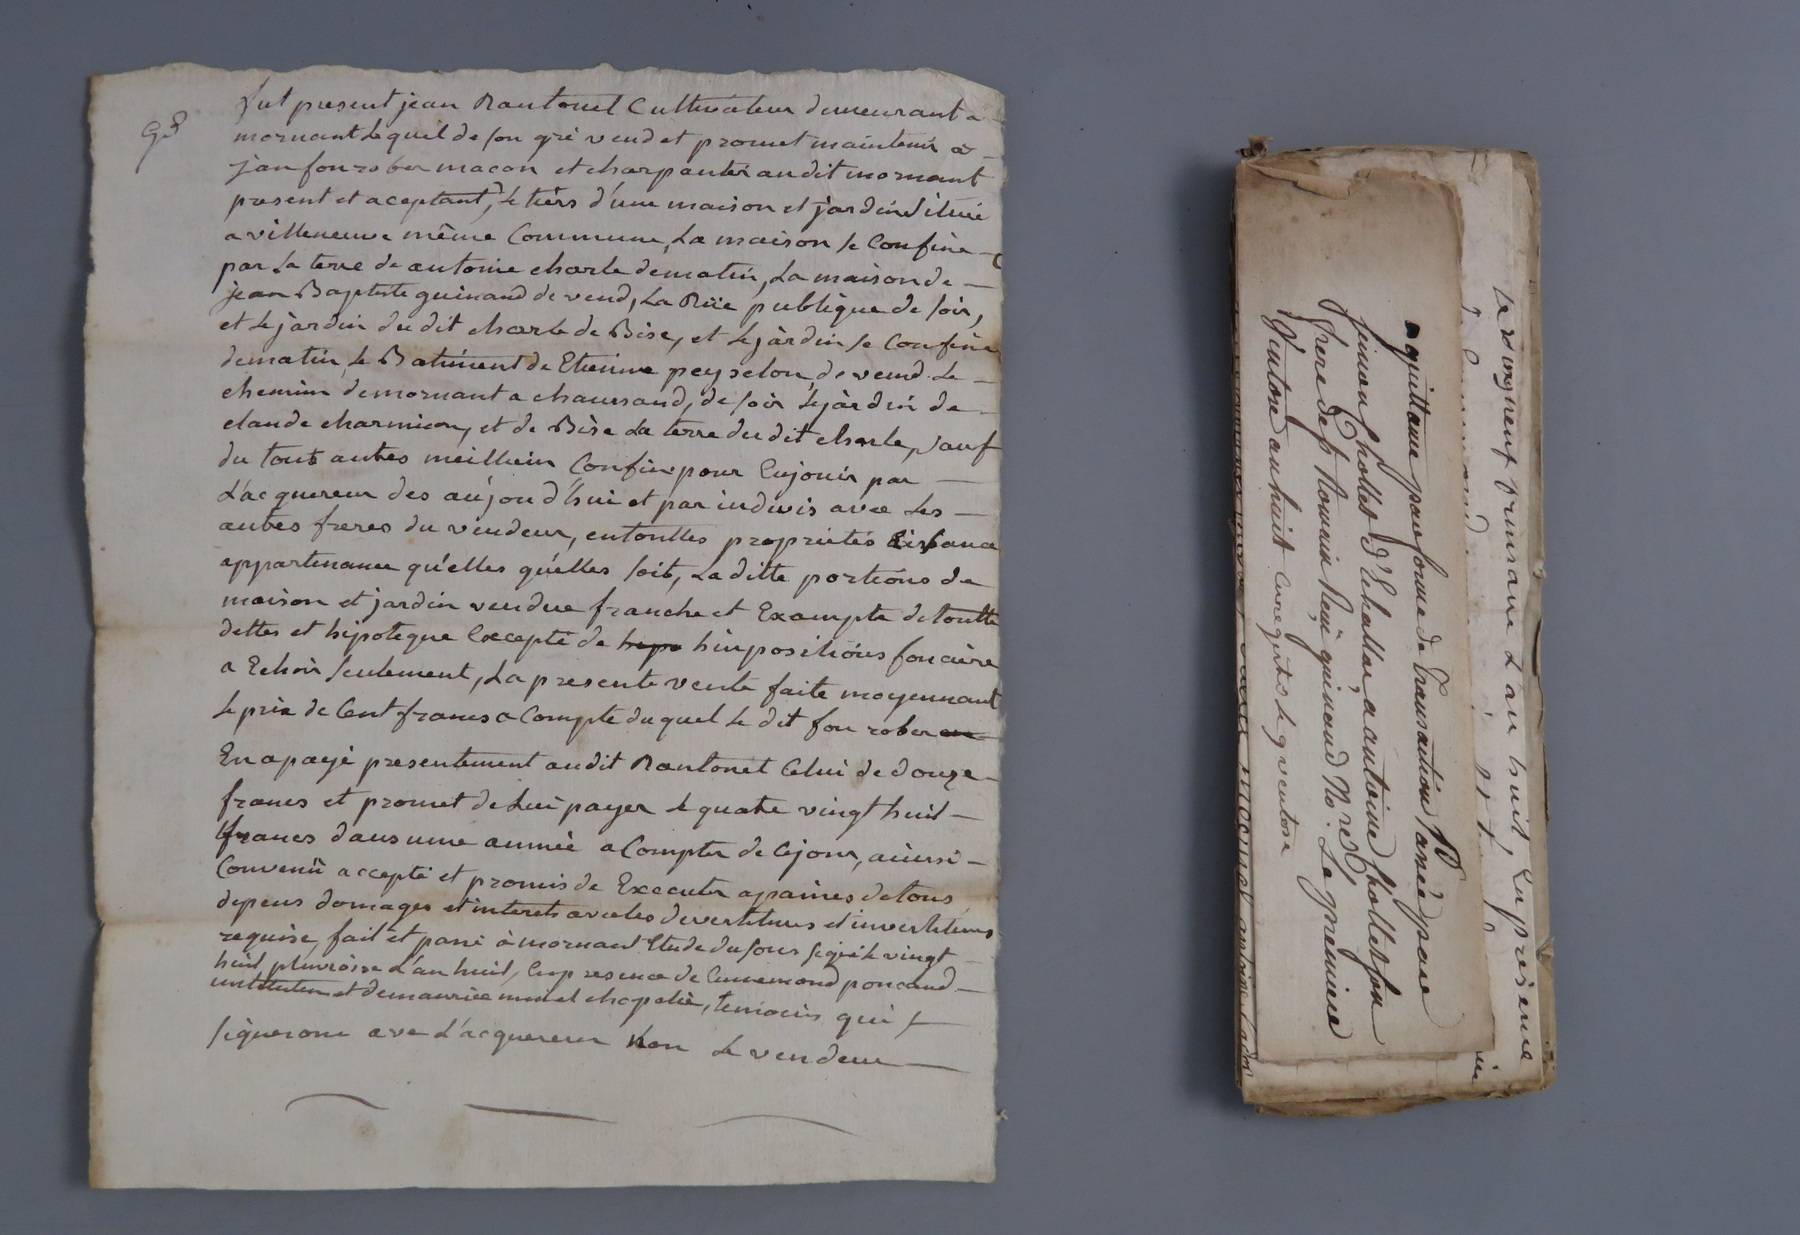 Fut present jean Nantonet Cultivateur demeurant a
mornant lequel de son gré vend et promet maintenir a
jan fonrober macon et charpantier audit mornant
present et aceptant, le tiers d'une maison et jardin situé
a villeneuve même Commune, La maison se Confine
par La terre de antoine charle dematin, La maison de
jean Baptiste guinand de vend, La Rüe publique de soir,
et le jardin du dit charle de Bise, et le jàrdin se Confine
dematin, le Batiment de Etienne peyselon, de vend le
chemin de mornant a chaussand, de soir le jàrdin de
claude charmion, et de Bise La terre du dit charle, sauf
du tout autres meillieur Confin pour Enjouir par
L'acquereur des aujourd'hui et par indivis avec Les
autres freres du vendeur, en touttes proprietés
appartenance qu'elles qu'elles soit, La ditte portions de
maison et jardin vendue franche et Exampte de toutte
dettes et hipoteque Excepté de himpositions fonciere
a Echoir seulement, La presente vente faite moyennant
le prix de Cent francs a Compte duquel le dit fonrober
En a payé presentement audit Nantonet Celui de douze
francs et promet de Lui payer le quatre vingt huit
francs dans une année a Compter de Cejour, ainsi
Convenü accepté et promis de Executer a paines de tous
depens domages et interets avec les devertitures et invertitures
requise, fait et passé à mornant Etude du sous signé le vingt
huit pluviose L'an huit, En presence de Ennemond poncand
instituteur et de maurice chapelié, temoins qui
signerons ave L'acquereur Non le vendeur
quittance par forme de transaction Passée par
simon Chollet D'Echallas, a antoine Chollet son
frere de st Romain Reçü guinand Nore. Le premiere
Ventose an huit enregistré le 9 ventose
L'an huit, En présence